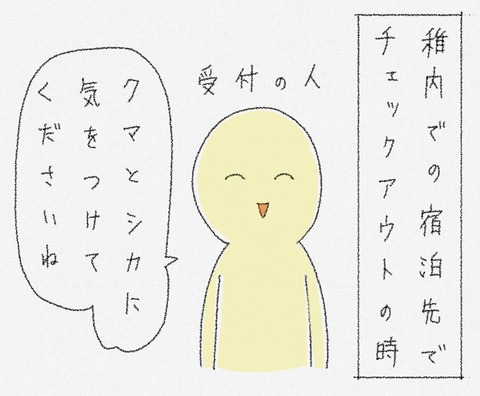 稚内での宿泊先で
チェックアウトの時
受付の人
クマとシカに
気をつけて
くださいね